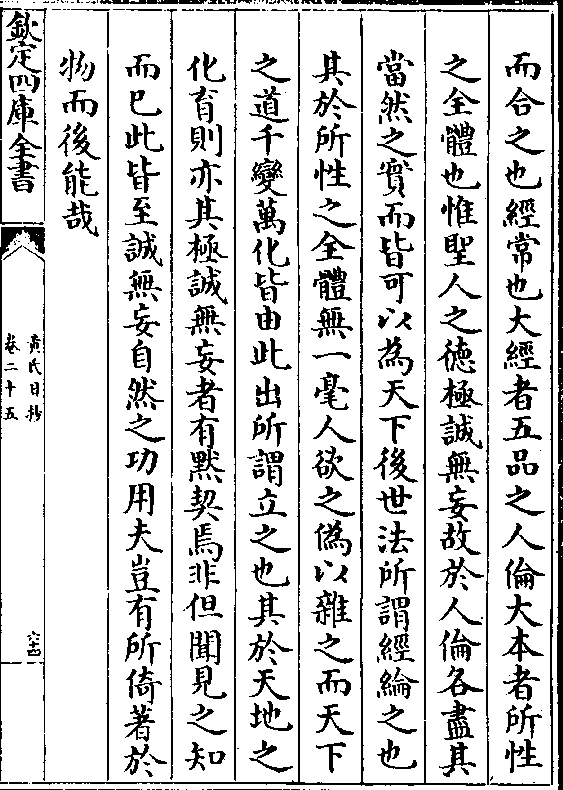 而合之也經常也大經者五品之人倫大本者所性
之全體也惟聖人之德極誠無妄故於人倫各盡其
當然之實而皆可以為天下後世法所謂經綸之也
其於所性之全體無一毫人欲之偽以雜之而天下
之道千變萬化皆由此出所謂立之也其於天地之
化育則亦其極誠無妄者有黙契焉非但聞見之知
而已此皆至誠無妄自然之功用夫豈有所倚著於
物而後能哉
欽定四庫全書
黃氏日抄
卷二十五